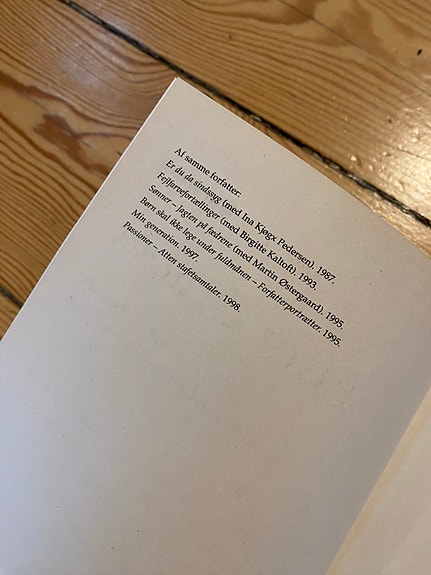 Af samme forfatter:
Er du da sindssyg (med Ina Kjøgx Pedersen). 1987.
Fejlfarvefortællinger (med Birgitte Kaltoft). 1993.
Sønner – Jagten på fædrene (med Martin Østergaard). 1995.
Børn skal ikke lege under fuldmånen – Forfatterportrætter. 1995.
Min generation. 1997.
Passioner – Atten stafetsamtaler. 1998.